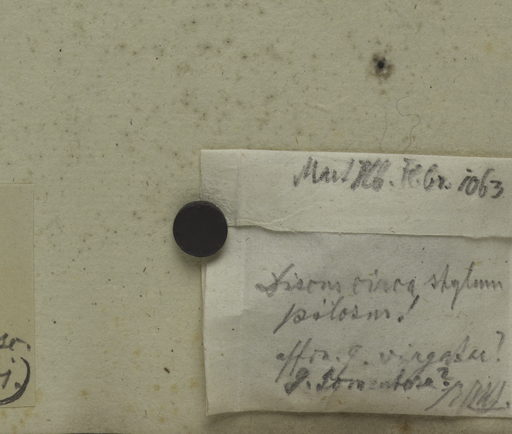 Mart Hb. Fl. Br. 1063
Discus circa stylum
pilosus!
affin. G. virgatae?
G. tomentosa?